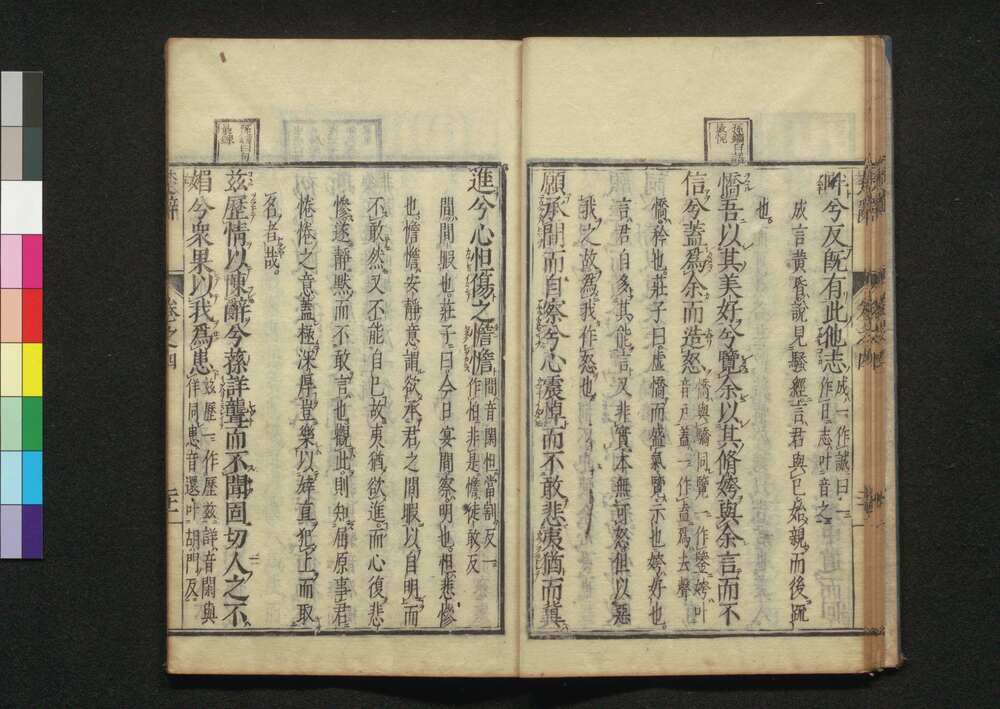 畔兮反既有此他志成一作誠曰一作日志叶音之
成言黃昏說見騷經言君與己始親而後疏
也
憍吾以其美好兮覽余以其脩姱與余言而不
信兮蓋爲余而造怒憍與驕同覽一作鑒姱叶音戶蓋一作盍爲去聲
憍矜也莊子曰虛憍而盛氣覽示也姱好也
言君自多其能言又非實本無可怒但以惡
我之故爲我作怒也
願承間而自察兮心震悼而不敢悲夷猶而冀
進兮心怛傷之憺憺間音閑怛當割反一作怕非是憺徒敢反
間間暇也莊子曰今日宴間察明也怛悲慘
也憺憺安靜意謂欲承君之間暇以自明而
不敢然又不能自已故夷猶欲進而心復悲
慘遂靜默而不敢言也觀此則知屈原事君
惓惓之意蓋極深厚豈樂以婞直犯上而取
名者哉
茲歷情以陳辭兮蓀詳聾而不聞固切人之不
媚兮衆果以我爲患茲歷一作歷茲詳音閑與佯同患音還叶胡門反
楚辭
卷之四